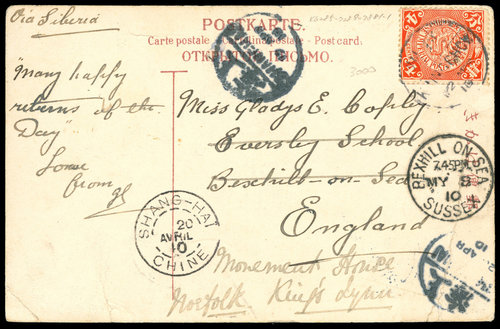 Via Siberia
POSTKARTE.
Carte postale - Cartolina postale - Post card.
ОТКРЫТОЕ ПИСЬМО.
3000
4
4
"Many happy
returns of the
Day"
Love
from
Miss Gladys E. Copley
Eversley School
Bexhill-on-Sea
England
Monement House
Norfolk King's Lynn
SHANG-HAI
20
AVRIL
10
CHINE
BEXHILL-ON-SEA
7.45PM
MY 8
10
SUSSEX
APR
10